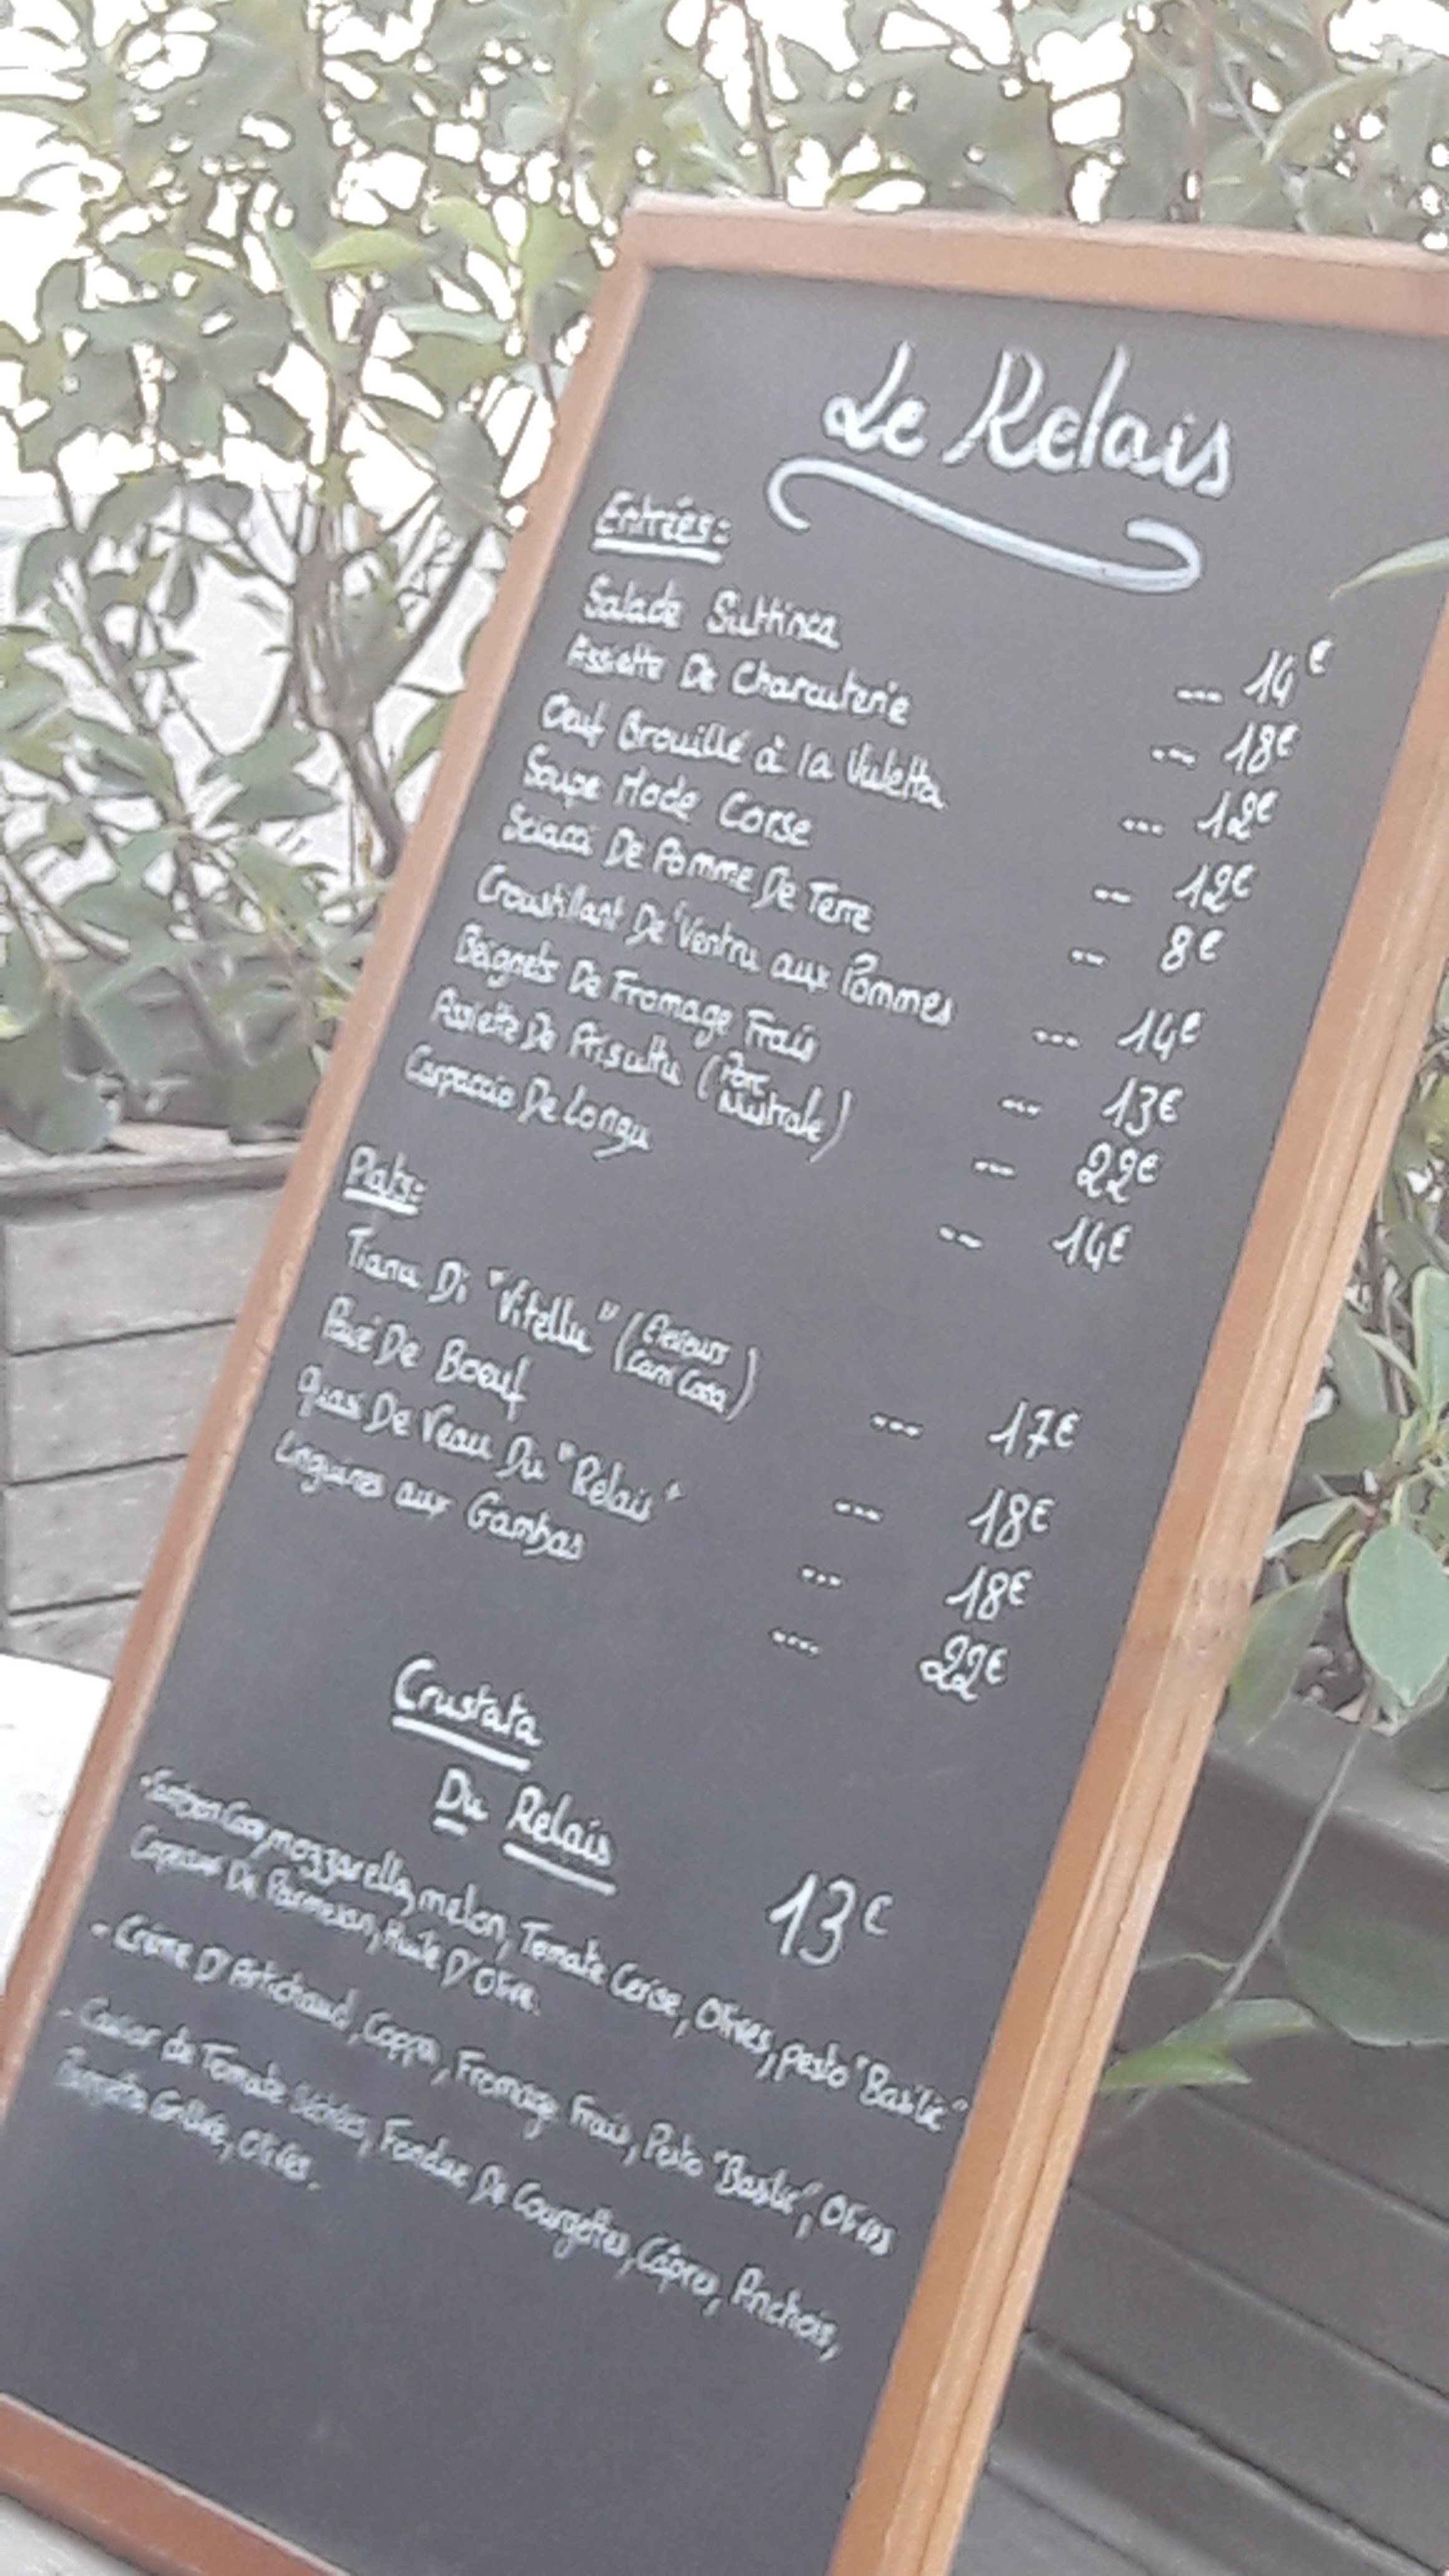 Le Relais
Entrées:
Salade Suttinca --- 14€
Assiette De Charcuterie --- 18€
Oeuf Brouillé à la Vuletta --- 12€
Soupe Mode Corse -- 12€
Sciacci De Pomme De Terre -- 8€
Croustillant De "Ventru aux Pommes --- 14€
Beignets De Fromage Frais --- 13€
Assiette De Prisuttu (Porc Nustrale) --- 22€
Carpaccio De Lonzu --- 14€
Plats:
Tianu Di "Vitellu" (Eleveurs Casa) --- 17€
Pavé De Boeuf --- 18€
Quasi De Veau Du "Relais" --- 18€
Linguines aux Gambas ---- 22€
Crustata
Du Relais 13€
mozzarella, melon, Tomate Cerise, Olives, pesto "Basilic"
Copeaux De Parmesan, Huile D'Olive.
- Crème D'Artichaud, Coppa, Fromage Frais, Pesto "Basilic", Olives
- Caviar de Tomate Séchées, Fondue De Courgettes, Câpres, Anchois,
Grillée, Olives.